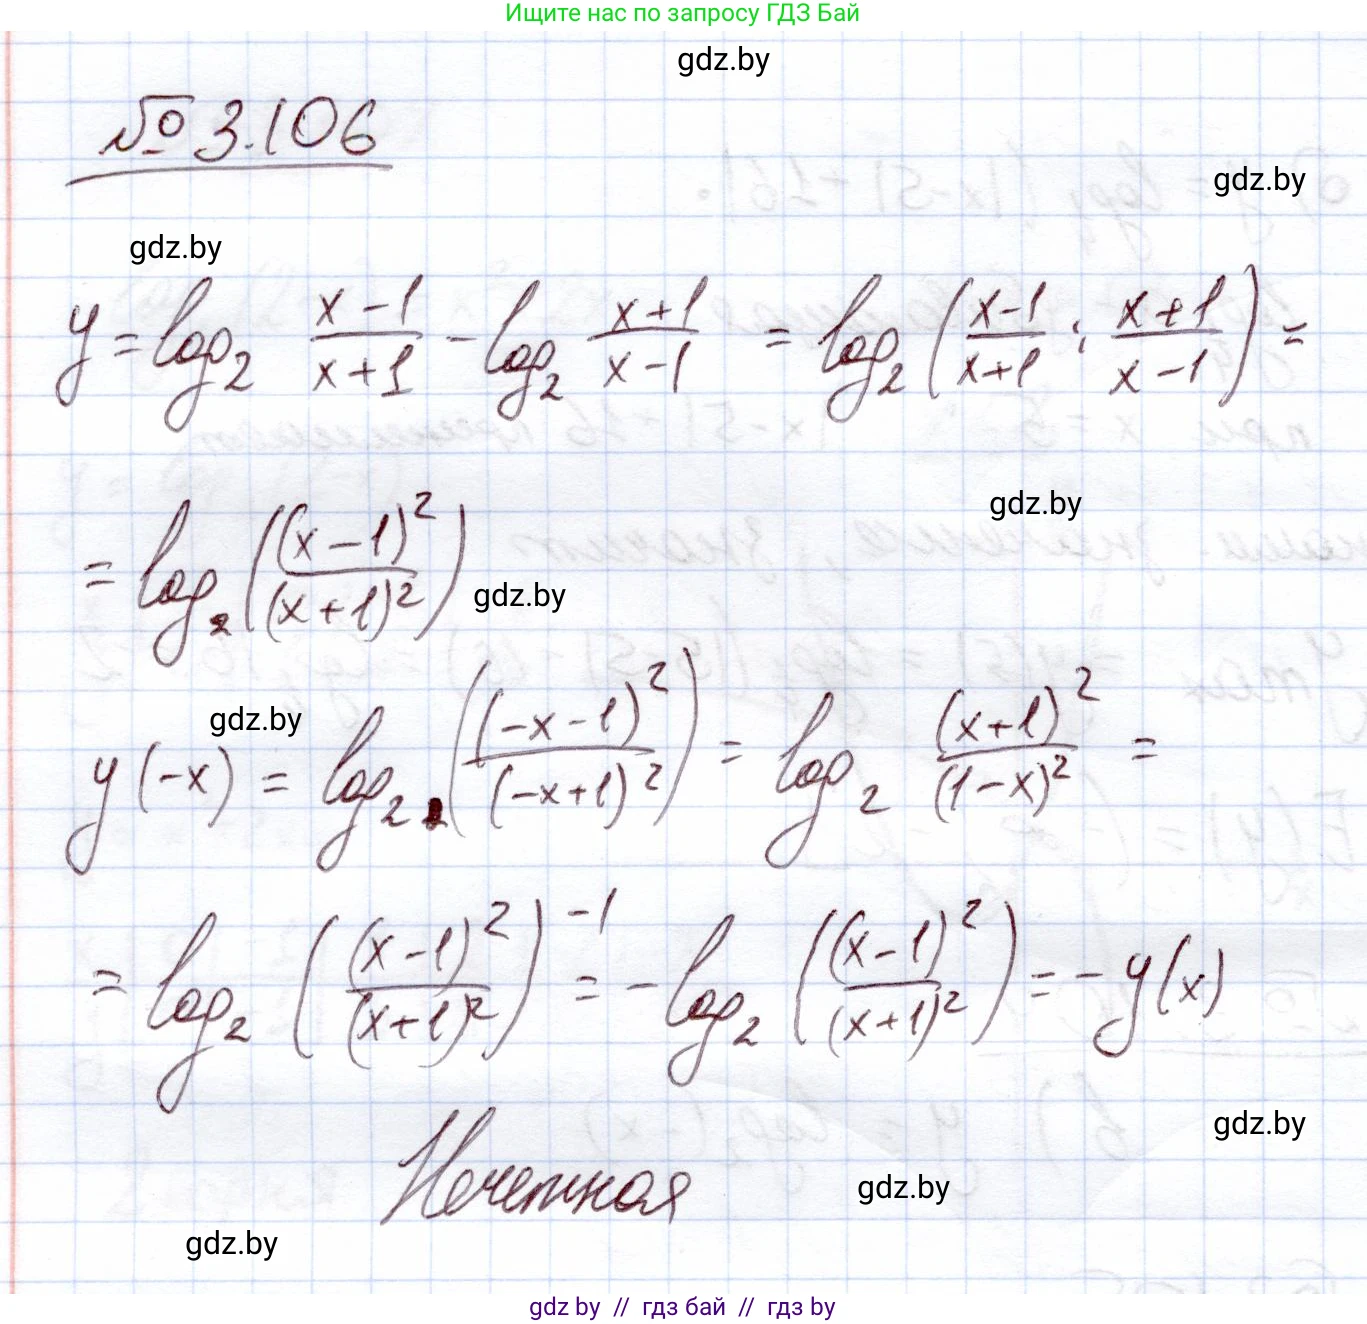 Ищите нас по запросу ГДЗ Бай
gdz.by
№ 3.106
gdz.by
gdz.by
y = log₂ (x-1)/(x+1) - log₂ (x+1)/(x-1) = log₂ ((x-1)/(x+1) : (x+1)/(x-1)) =
gdz.by
= log₂ ((x-1)²/(x+1)²)
gdz.by
gdz.by
y(-x) = log₂ ((-x-1)²/(-x+1)²) = log₂ (x+1)²/(1-x)² =
= log₂ ((x-1)²/(x+1)²)⁻¹ = -log₂ ((x-1)²/(x+1)²) = -y(x)
gdz.by
Нечетная
gdz.by
gdz.by
gdz by // гдз бай // гдз by